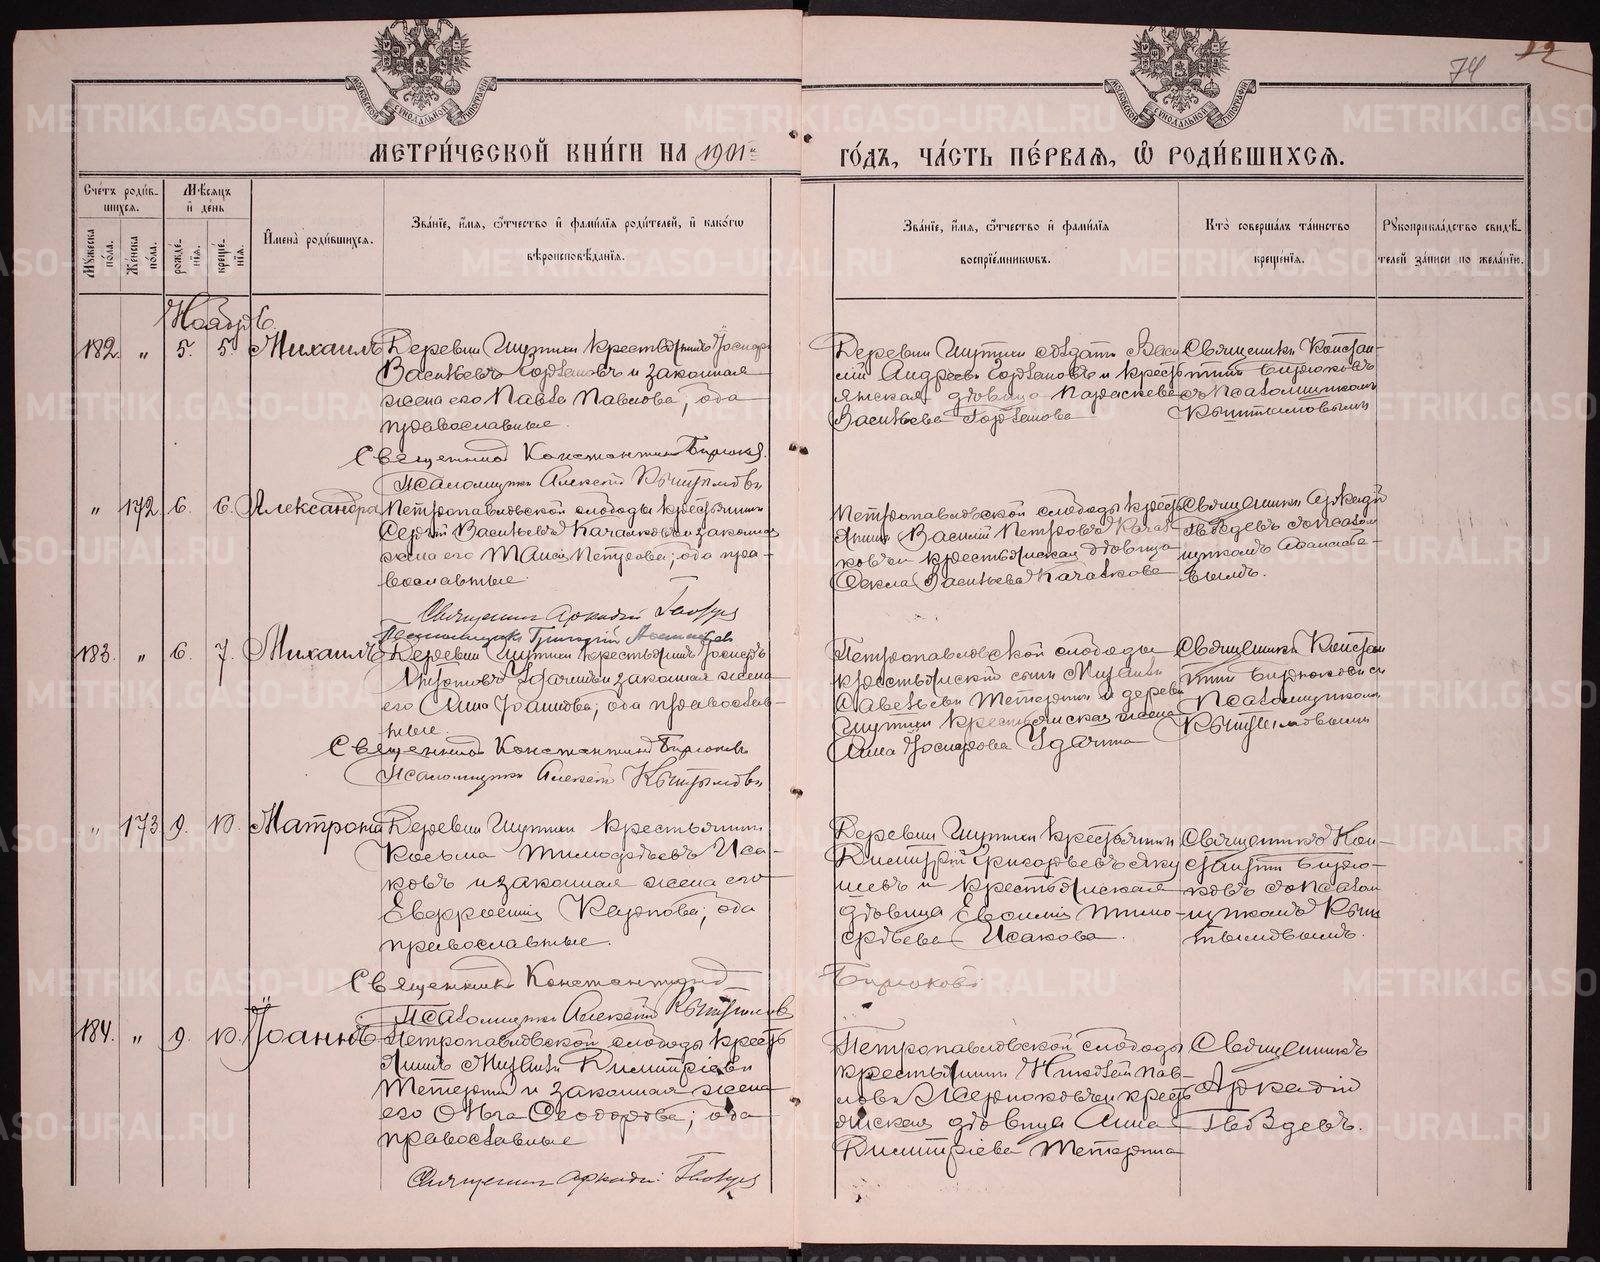 74
12
МЕТРИ́ЧЕСКОЙ КНИ́ГИ НА 1901 ГО́ДЪ, ЧА́СТЬ ПЕ́РВАЯ, Ѡ РОДИ́ВШИХСЯ.
Сче́тъ роди́в-
шихся.
Мꙋ́жеска по́ла.
Же́нска по́ла.
Мѣ́сяцъ
и де́нь
рожде́нїя.
креще́нїя.
Имена̀ роди́вшихся.
Зва́нїе, и́мя, ѻ́тчество и фами́лїя роди́телей, и како́гѡ
вѣроисповѣ́данїя.
Зва́нїе, и́мя, ѻ́тчество и фами́лїя
воспрїе́мниковъ.
Кто̀ соверша́лъ та́инство
креще́нїя.
Рꙋкоприкла́дство свидѣ́-
телей за́писи по жела́нїю.
Ноябрь.
182. " 5. 5. Михаилъ
Деревни Шутихи крестьянинъ
Васильевъ и законная
жена его Павла Павлова; оба
православные.
Священникъ Константинъ Бирюковъ.
Псаломщикъ Алексей Кыштымовъ
Деревни Шутихи солдатъ Васи-
лій Андреевъ и кресть-
янская дѣвица Параскева
Васильева
Священникъ Констан-
тинъ Бирюковъ
съ псаломщикомъ
Кыштымовымъ
" 172 6. 6. Александра
Петропавловской слободы крестьянинъ
Сергій Васильевъ Качалковъ и законная
жена его Таисія Петрова; оба пра-
вославные.
Священникъ Аркадій Гвоздевъ
Псаломщикъ Григорій
Петропавловской слободы кресть-
янинъ Василій Петровъ Качал-
ковъ и крестьянская дѣвица
Васильева Качалкова
Священникъ Аркадій
Гвоздевъ съ псалом-
щикомъ
183. " 6. 7. Михаилъ
Деревни Шутихи крестьянинъ
и законная жена
его Анна Іоаннова; оба православ-
ные.
Священникъ Константинъ Бирюковъ
Псаломщикъ Алексей Кыштымовъ
Петропавловской слободы
крестьянскій сынъ Михаилъ
Савельевъ Тетеринъ и деревни
Шутихи крестьянская жена
Анна
Священникъ Констан-
тинъ Бирюковъ съ
псаломщикомъ
Кыштымовымъ
" 173 9. 10. Матрона
Деревни Шутихи крестьянинъ
Косьма Тимофѣевъ Иса-
ковъ и законная жена его
Евфросинія Карпова; оба
православные.
Священникъ Константинъ Бирюковъ
Псаломщикъ Алексей Кыштымовъ
Деревни Шутихи крестьянинъ
Димитрій Григорьевъ Яку-
шевъ и крестьянская
дѣвица Евфимія Тимо-
фѣева Исакова.
Священникъ Кон-
стантинъ Бирю-
ковъ съ псалом-
щикомъ Кыш-
тымовымъ.
184. " 9. 10. Іоаннъ
Петропавловской слободы кресть-
янинъ Михаилъ Димитріевъ
Тетеринъ и законная жена
его Ольга Ѳеодорова; оба
православные
Священникъ Аркадій Гвоздевъ
Петропавловской слободы
крестьянинъ Николай Пав-
ловъ и кресть-
янская дѣвица Анна
Димитріева Тетерина
Священникъ
Аркадій
Гвоздевъ.
METRIKI.GASO-URAL.RU